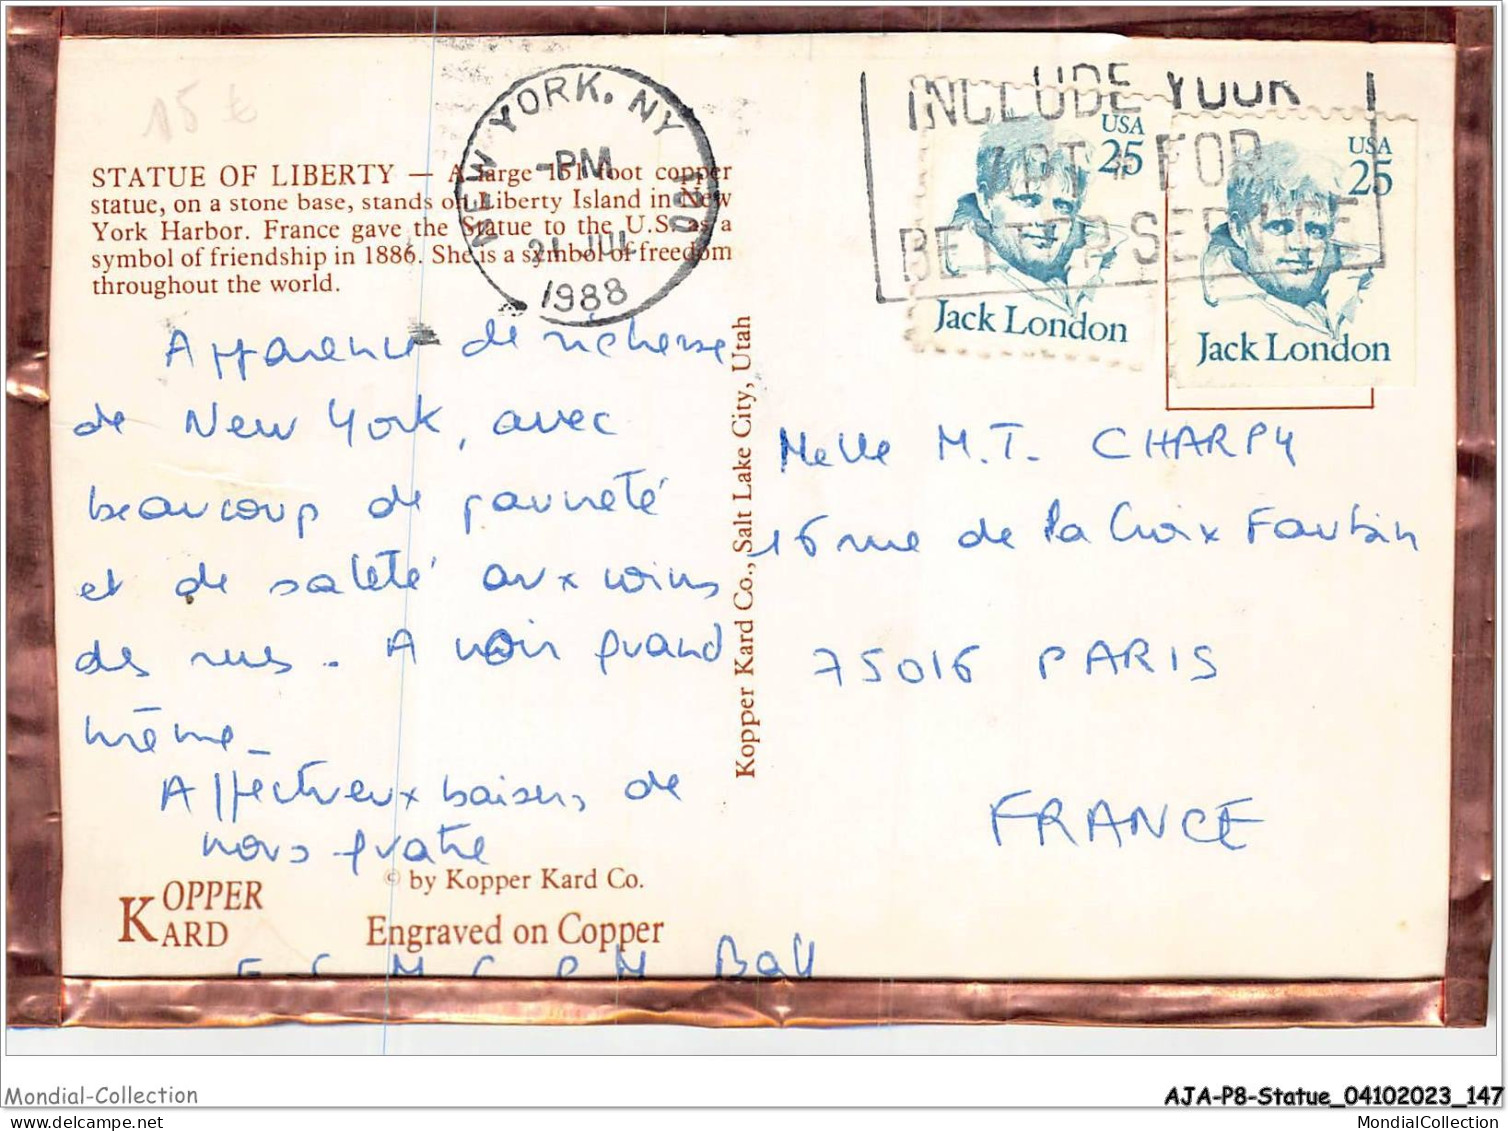 15 €
NEW YORK, NY 100
-PM
21 JUL
1988
INCLUDE YOUR
APT # FOR
BETTER SERVICE
USA
25
Jack London
USA
25
Jack London
STATUE OF LIBERTY — A large 151 foot copper
statue, on a stone base, stands on Liberty Island in New
York Harbor. France gave the Statue to the U.S. as a
symbol of friendship in 1886. She is a symbol of freedom
throughout the world.
Apparence de richesse
de New York, avec
beaucoup de pauvreté
et de saleté aux coins
des rues. A voir quand
même_
Affectueux baisers de
nous quatre
Kopper Kard Co., Salt Lake City, Utah
Melle M.T. CHARPY
16 rue de la Croix Faubin
75016 PARIS
FRANCE
© by Kopper Kard Co.
KOPPER
KARD
Engraved on Copper
Mondial-Collection
mondialcollection.delcampe.net
AJA-P8-Statue_04102023_147
MondialCollection